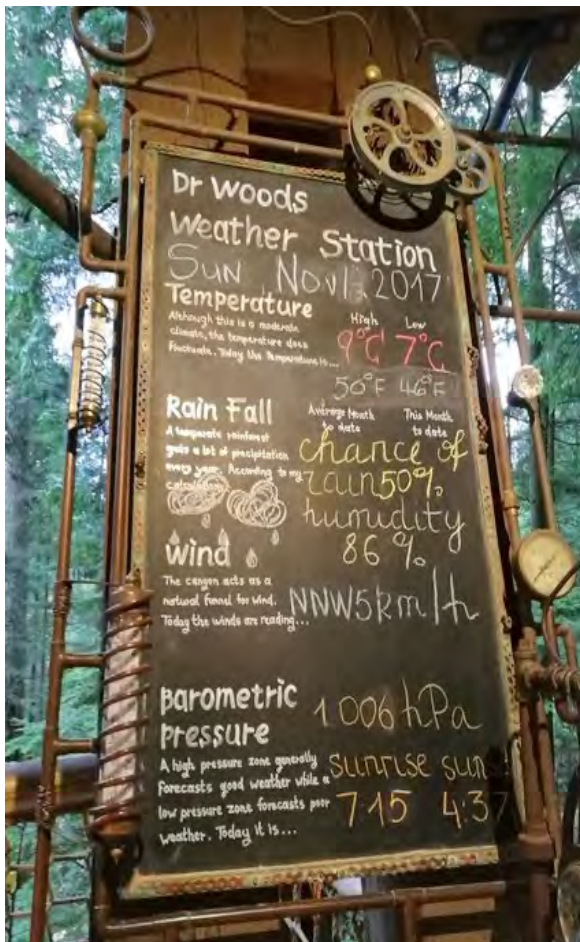 Dr Woods
Weather Station
Sun Nov 2017
Temperature
Although this is a moderate
climate, the temperature does
fluctuate. Today the temperature is...
High Low
9°C 7°C
50°F 46°F
Rain Fall
A temperate rainforest
gets a lot of precipitation
every year. According to my
calculations
Average Month
to date
This Month
to date
chance of
rain 50%
humidity
86%
Wind
The canyon acts as a
natural funnel for wind.
Today the winds are reading...
NNW5km/h
Barometric
Pressure
1006hPa
A high pressure zone generally
forecasts good weather while a
low pressure zone forecasts poor
weather. Today it is...
sunrise sun
715 4:37